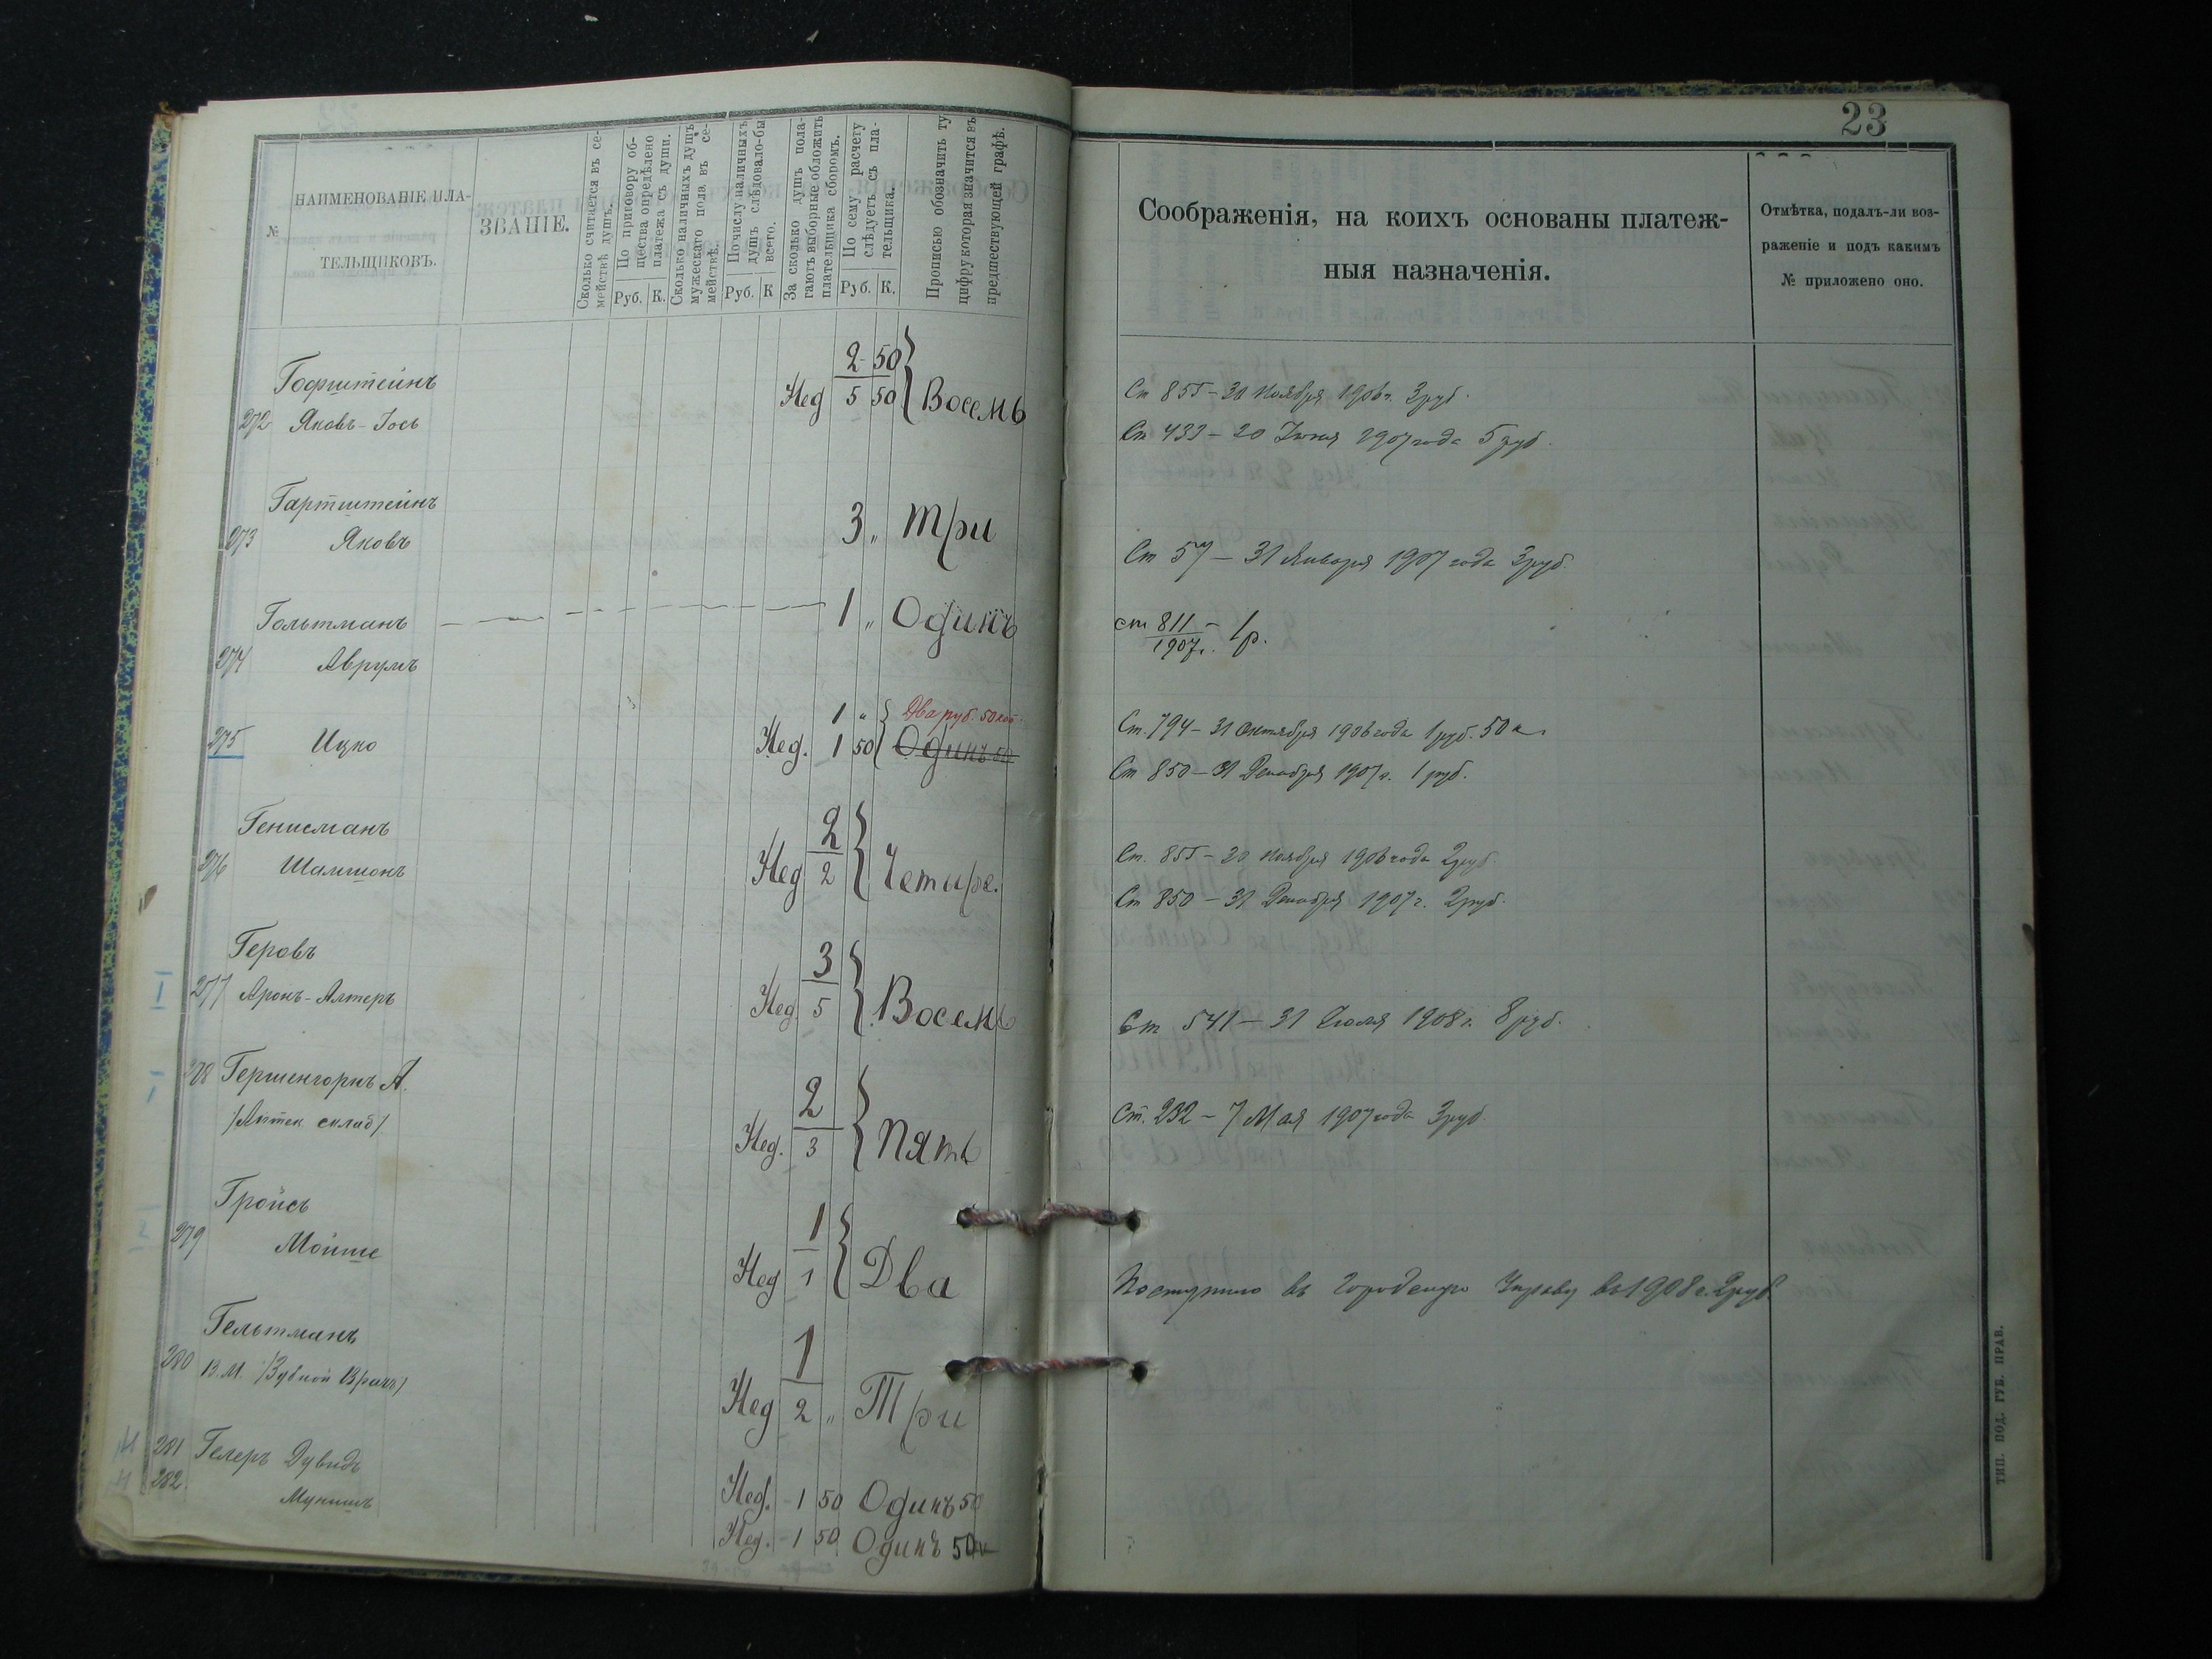 23
№
НАИМЕНОВАНІЕ ПЛА-
ТЕЛЬЩИКОВЪ.
ЗВАНІЕ.
Сколько считается въ се-
мействѣ душъ.
По приговору об-
щества опредѣлено
платежа съ души.
Руб. К.
Сколько наличныхъ душъ
мужескаго пола въ се-
мействѣ.
По числу наличныхъ
душъ слѣдовало-бы
всего.
Руб. К
За сколько душъ пола-
гаютъ выборные обложить
плательщика сборомъ.
По сему расчету
слѣдуетъ съ пла-
тельщика.
Руб. К.
Прописью обозначить ту
цифру которая значится въ
предшествующей графѣ.
Соображенія, на коихъ основаны платеж-
ныя назначенія.
Отмѣтка, подалъ-ли воз-
раженіе и подъ какимъ
№ приложено оно.
Гофштейнъ 2 50
272 Яковъ-Іось Нед 5 50 Восемь
Ст 855 - 30 Ноября 1906 г. 3 руб.
Ст 433 - 20 Іюня 1907 года 5 руб.
Гартштейнъ
273 Яковъ 3 „ Три
Ст 57 - 31 Января 1907 года 3 руб.
Гольтманъ 1 „ Одинъ
274 Аврумъ
ст 811/1907 г. - 1 р.
1 „ Два руб. 50 коп.
275 Ицко Нед. 1 50 Одинъ 50
Ст. 794 - 31 Октября 1906 года 1 руб. 50 к.
Ст 850 - 31 Декабря 1907 г. 1 руб.
Генисманъ 2
276 Шамшонъ Нед 2 Четыре.
Ст. 855 - 30 Ноября 1906 года 2 руб.
Ст 850 - 31 Декабря 1907 г. 2 руб.
Геровъ 3
277 Аронъ-Алтеръ Нед. 5 Восемь
Ст 541 - 31 Іюля 1908 г. 8 руб.
278 Гершенгорнъ А. 2
/Аптек склад/ Нед. 3 Пять
Ст. 232 - 7 Мая 1907 года 3 руб.
Гройсъ 1
279 Мойше Нед 1 Два
Поступило въ Городскую Управу въ 1908 г. 2 руб
Гельтманъ 1
280 В. М. /Зубной Врачъ/ Нед 2 „ Три
281 Гелеръ Дувидъ Нед. 1 50 Одинъ 50
282 Мунишъ Нед. 1 50 Одинъ 50 к
ТИП. ПОД. ГУБ. ПРАВ.